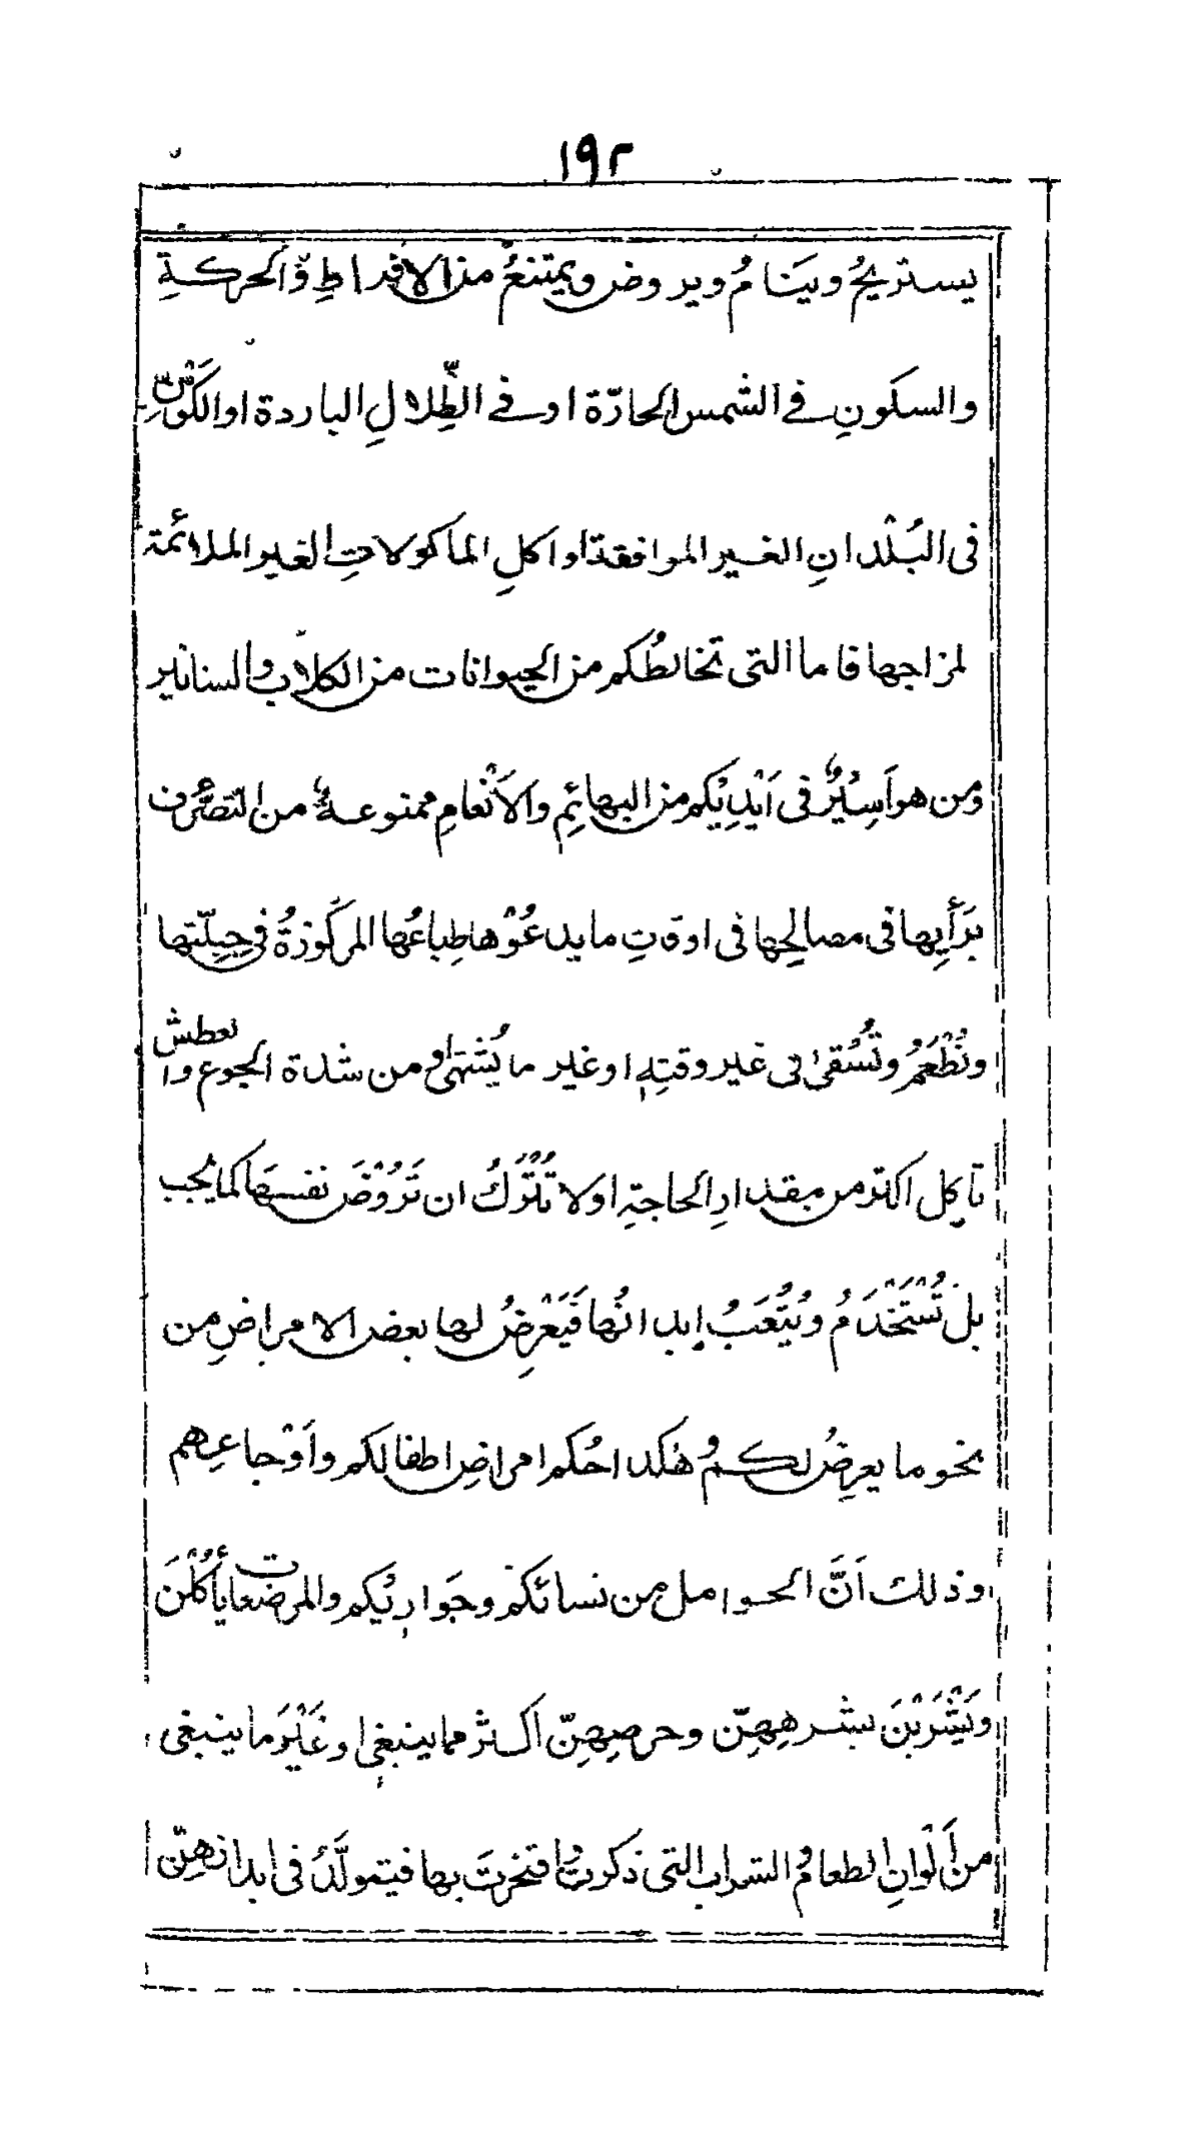 ١٩٢
يستريحُ ويَنامُ ويروض ويمتنعُ من الافراطِ في الحركةِ
والسكونِ في الشمس الحارّة او في الظِّلالِ الباردة او الكَوْنِ
فى البُلْدانِ الغير الموافقة او اكلِ الماكولاتِ الغير الملائمة
لمزاجها فاما التى تخالطُكم من الحيوانات من الكلاب والسنانير
ومن هو اَسِيْرٌ فى اَيْدِيْكم من البهائِمِ والاَنْعامِ ممنوعةٌ من التصرُّف
بَرَأيِها فى مصالِحِها فى اوقاتِ ما يدعُوْها طِباعُها المركُوزةُ في جِبِلّتها
وتُطْعَمُ وتُسْقىٰ فى غير وقتِهٖ او غير ما يُشْتهىٰ ومن شدة الجوع والعطش
تاكل اكثر من مقدارِ الحاجةِ او لا تُتْرَكُ ان تَرُوْضَ نفسَها كما يجب
بل تُسْتَخْدَمُ ويُتْعَبُ ابدانُها فَيَعْرِضُ لها بعض الامراضِ من
نحو ما يعرِضُ لكم وهٰكذا حُكم امراضِ اطفالكم واَوْجاعِهم
وذلك اَنَّ الحوامل من نسائكم وجَوارِيْكم والمرضعات يأكُلْنَ
ويَشْرَبْنَ بشرهِهِنّ وحرصِهِنّ اكثر مما ينبغي او غَيْرَ ما ينبغى
من اَلْوانِ الطعام والشراب التى ذكرتُ وافتخرتَ بها فيتولَّدُ فى ابدانهِنّ